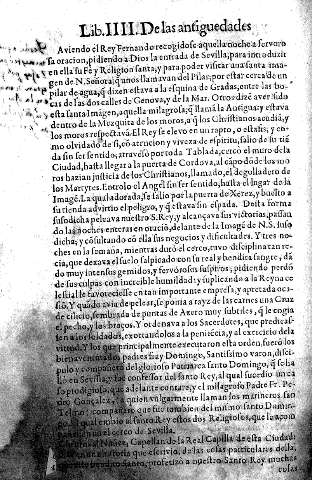 Lib. IIII. De las antiguedades
Aviendo el Rey Fernando recogidose aquella noche a fervoro
sa oracion, pidiendo a Dios la entrada de Sevilla, para introduzir
en ella su Fè y Religion santa, y para poder visitar una santa ima
gen de N. Señora, q̃ unos llamavan del Pilar, por estar cerca de un
pilar de agua, q̃ dizen estava a la esquina de Gradas, entre las bo
cas de las dos calles de Genova, y de la Mar. Otros dizē aver sido
esta santa Imagen, aquella milagrosa, q̃ llamā la Antigua, y estava
dentro de la Mezquita de los moros, a q̃ los Christianos acudiā, y
los moros respetavā. El Rey se elevo en un rapto, o extasis, y en
mo olvidado de si, cō atencion y viveza de espiritu, salio de su tiē
da sin ser sentido, atravesò por toda Tablada, cercò el muro de la
Ciudad, hasta llegar a la puerta de Cordova, al cāpo dōde los mo
ros hazian justicia de los Christianos, llamado, el degolladero de
los Martyres. Entrolo el Angel sin ser sentido, hasta el lugar de la
Imagē. La qual adorada, se salio por la puerta de Xerez, y bolvio a
su tienda advirtio el peligro, y q̃ estava sin espada. Desta forma
peleava nuestro S. Rey, y alcançava sus victorias, passan
do las noches enteras en oracion, delante de la Imagē de N. S. suso
dicha, y cōsultando cō ella sus negocios y dificultades. Y tres no
ches en la semana, mientras durò el cerco, tuvo disciplina tan re
cia, que dexava el suelo salpicado con su real y bendita sangre, dā
do muy intensos gemidos, y fervorosos suspiros, pidiendo perdō
de sus culpas con increible humildad, y suplicando a la Reyna ce
lestial le favoreciesse en tan importante empresa, y apretada oca
siō. Y quādo avia de pelear, se ponia a rayz de las carnes una Cruz
de cilicio, sembrada de puntas de azero muy subtiles, q̃ le cogia
el pecho, y los braços. Y ordenava a los Sacerdotes, que predicas
sen a los soldados, exortandolos a la penitēcia, y al exercicio de la
virtud. Y los que principalmente executaron esta orden, fuerō los
bienaventurados padres fray Domingo, Santissimo varon, disci
pulo y compañero del glorioso Patriarca santo Domingo, q̃ se ha
llò en Sevilla, y fue confessor del santo Rey, al qual sucedio un ca
so prodigioso, que adelante contarè, y el milagroso Padre Fr. Pe
dro Gonçalez, a quien vulgarmente llaman los marineros san
Telmo, compañero que fue tambien del mismo santo Domin
go, el qual embio al santo Rey estos dos Religiosos, que le acom
en el cerco de Sevilla.
Nuñez, Capellan de la Real Capilla de esta Ciudad,
historia que escrivio, de las cosas particulares della,
profetizò a nuestro Santo Rey, muchas
cosas